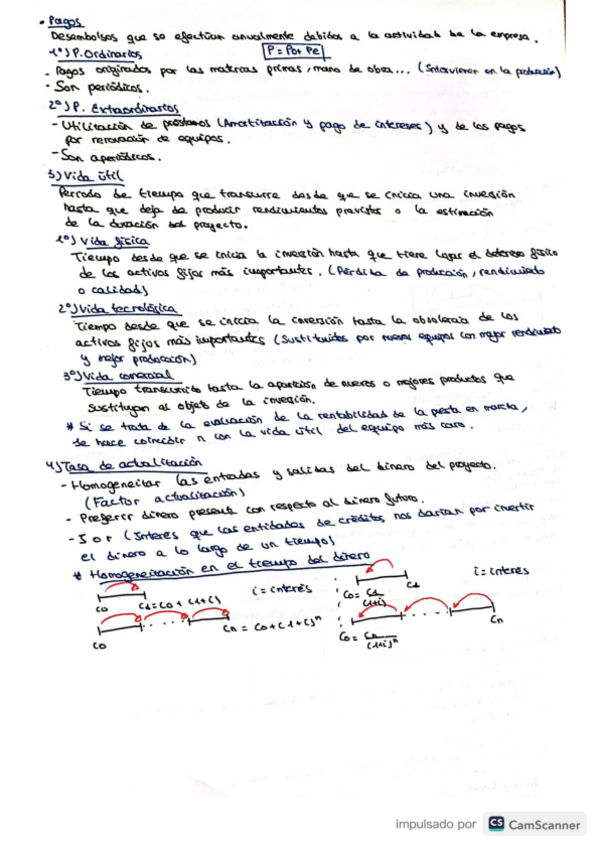 • Pagos
Desembolsos que se efectúan anualmente debidos a la actividad de la empresa.
1º) P. Ordinarios P = Po + Pe
- Pagos originados por las materias primas, mano de obra... (Intervienen en la producción)
- Son periódicos.
2º) P. Extraordinarios
- Utilización de préstamos (Amortización y pago de intereses) y de los pagos
por renovación de equipos.
- Son aperiódicos.
3) Vida útil
Periodo de tiempo que transcurre desde que se inicia una inversión
hasta que deja de producir rendimientos previstos o la estimación
de la duración del proyecto.
1º) Vida física
Tiempo desde que se inicia la inversión hasta que tiene lugar el deterioro físico
de los activos fijos más importantes. (Pérdida de producción, rendimiento
o calidad)
2º) Vida tecnológica
Tiempo desde que se inicia la inversión hasta la obsolencia de los
activos fijos más importantes (Sustituidos por nuevos equipos con mayor rendimiento
y mejor producción)
3º) Vida comercial
Tiempo transcurrido hasta la aparición de nuevos o mejores productos que
sustituyan al objeto de la inversión.
* Si se trata de la evaluación de la rentabilidad de la puesta en marcha,
se hace coincidir n con la vida útil del equipo más caro.
4) Tasa de actualización
- Homogeneizar las entradas y salidas del dinero del proyecto.
(Factor actualización)
- Preferir dinero presente con respecto al dinero futuro.
- I o r (Interes que las entidades de créditos nos darían por invertir
el dinero a lo largo de un tiempo)
* Homogeneización en el tiempo del dinero
C0 C1 = C0 + (1+i) i = interés
C0 Cn = C0 + (1+i)^n
C0 = C1/(1+i) C1 i = interés
C0 = Cn/(1+i)^n Cn
impulsado por CS CamScanner